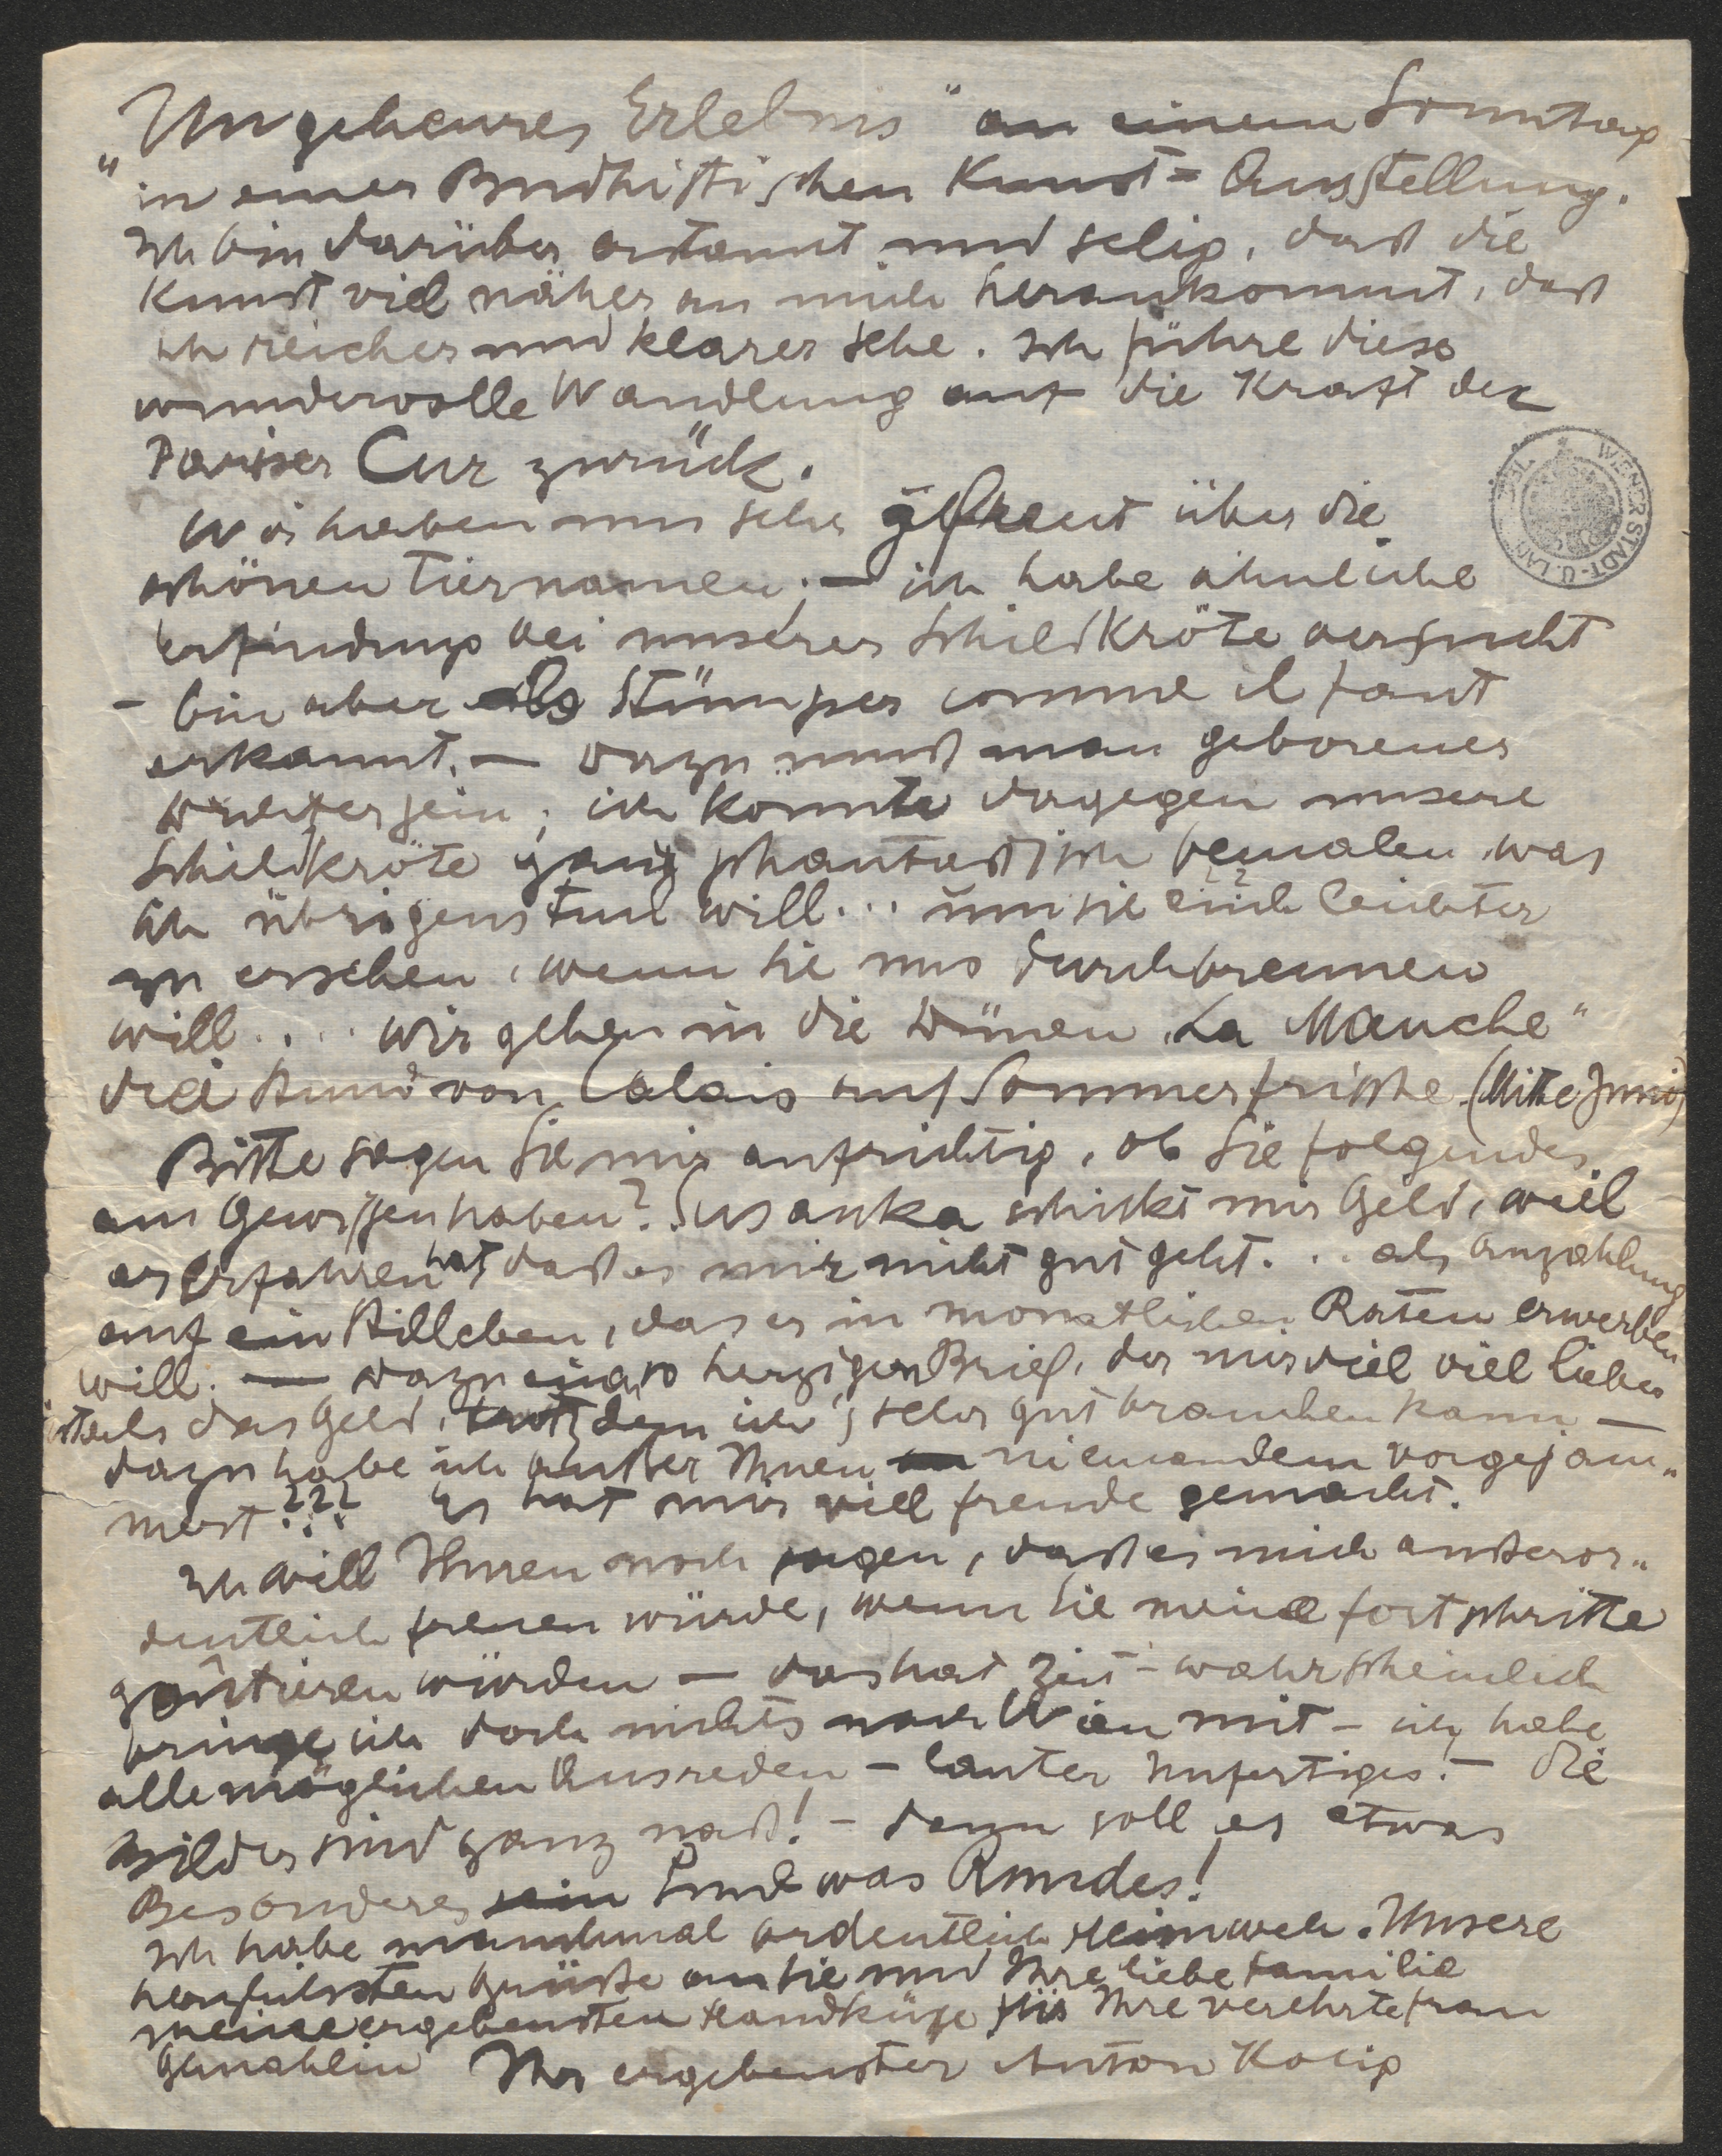 „Ungeheures Erlebnis" an einem Sonntag
in einer Budhistischen Kunst-Ausstellung.
Ich bin darüber erstaunt und selig, daß die
Kunst viel näher an mich herankommt, daß
ich reicher und klarer sehe. Ich führe diese
wundervolle Wandlung auf die Kraft der
Pariser Cur zurück.
Wir haben uns sehr gefreut über die
schönen Tiernamen; — ich habe ähnliche
Erfindung bei unserer Schildkröte versucht
- bin aber als Stümper comme il faut
erkannt. — Dazu muß man geborener
Dichter sein; ich konnte dagegen unsere
Schildkröte ganz phantastisch bemalen was
ich übrigens tun will... um sie leichter
zu ersehen, wenn sie uns durchbrennen
will.... Wir gehen in die Dünen „La Manche"
drei Stund von Calais auf Sommerfrische. (Mitte Juni)
Bitte sagen Sie mir aufrichtig, ob Sie folgendes
am Gewissen haben? Susanka schickt mir Geld, weil
er erfahren hat, daß es mir nicht gut geht... als Anzahlung
auf ein Stilleben, das er in monatlichen Raten erwerben
will. — Dazu einen so herzigen Brief, der mir viel viel lieber
ist als das Geld, trotzdem ich's sehr gut brauchen kann —
dazu habe ich außer Ihnen niemandem vorgejam„
mert??? Es hat mir viel freude gemacht.
Ich will Ihnen noch sagen, daß es mich außeror„
dentlich freuen würde, wenn Sie meine fortschritte
goûtieren würden — das hat Zeit - wahrscheinlich
bringe ich doch nichts nach Wien mit - ich habe
alle möglichen Ausreden - lauter Unfertiges. - Die
Bilder sind ganz naß! - dann soll es etwas
Besonderes sein und was Rundes!
Ich habe manchmal ordentlich Heimweh. Unsere
herzlichsten Grüße an Sie und Ihre liebe Familie
meine ergebensten Handküße für Ihre verehrte frau
Gemahlin Ihr ergebenster Anton Kolig
WIENER STADT-U. LAN